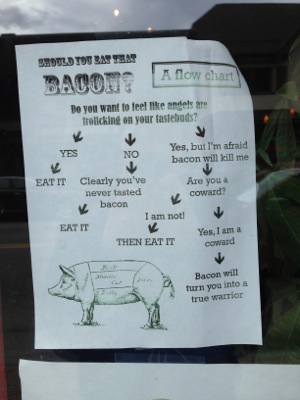 SHOULD YOU EAT THAT
BACON?
A flow chart
Do you want to feel like angels are
frolicking on your tastebuds?
YES
NO
Yes, but I'm afraid
bacon will kill me
EAT IT
Clearly you've
never tasted
bacon
Are you a
coward?
EAT IT
I am not!
THEN EAT IT
Yes, I am a
coward
Bacon will
turn you into a
true warrior